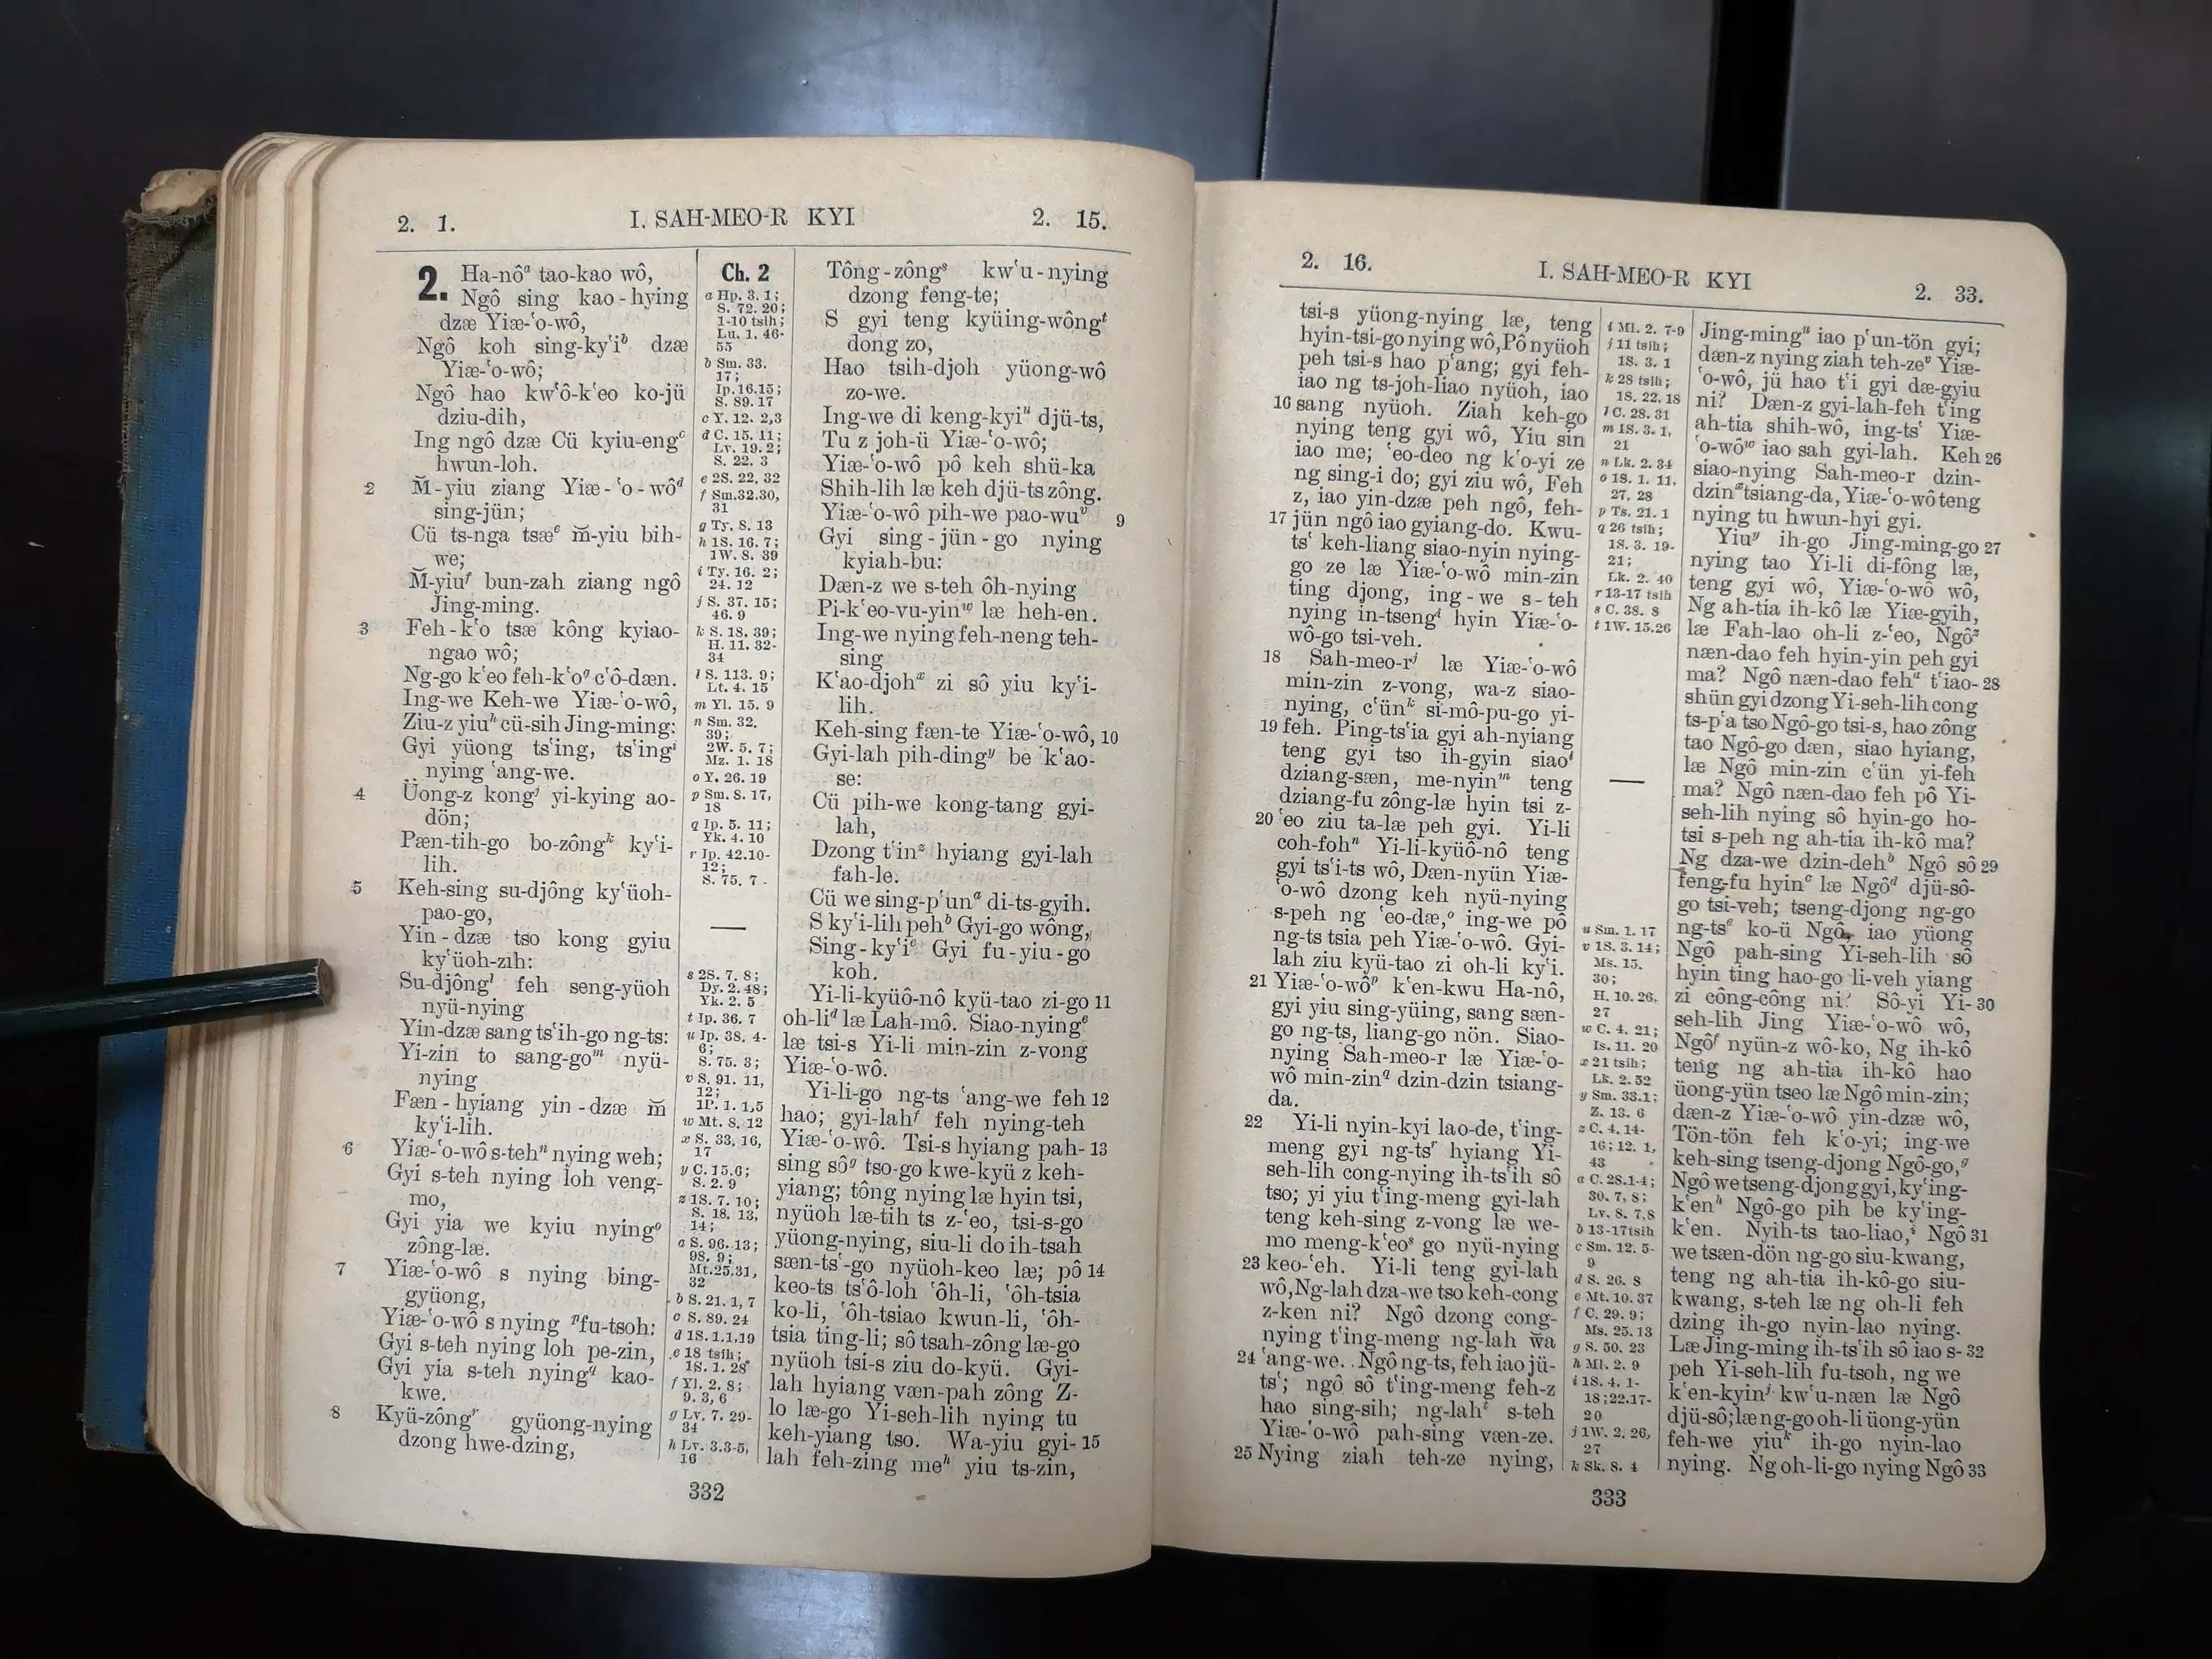 2. 1.
I. SAH-MEO-R KYI
2. 15.
2. Ha-nôᵃ tao-kao wô,
Ngô sing kao-hying
dzæ Yiæ-ʻo-wô,
Ngô koh sing-kyʻiᵇ dzæ
Yiæ-ʻo-wô;
Ngô hao kwʻô-kʻeo ko-jü
dziu-dih,
Ing ngô dzæ Cü kyiu-engᶜ
hwun-loh.
2 M̆-yiu ziang Yiæ-ʻo-wôᵈ
sing-jün;
Cü ts-nga tsæᵉ m̆-yiu bih-
we;
M̆-yiuᶠ bun-zah ziang ngô
Jing-ming.
3 Feh-kʻo tsæ kông kyiao-
ngao wô;
Ng-go kʻeo feh-kʻoᵍ cʻô-dæn.
Ing-we Keh-we Yiæ-ʻo-wô,
Ziu-z yiuʰ cü-sih Jing-ming:
Gyi yüong tsʻing, tsʻingⁱ
nying ʻang-we.
4 Üong-z kongʲ yi-kying ao-
dön;
Pæn-tih-go bo-zôngᵏ kyʻi-
lih.
5 Keh-sing su-djông kyʻüoh-
pao-go,
Yin-dzæ tso kong gyiu
kyʻüoh-zih:
Su-djôngˡ feh seng-yüoh
nyü-nying
Yin-dzæ sang tsʻih-go ng-ts:
Yi-zin to sang-goᵐ nyü-
nying
Fæn-hyiang yin-dzæ m̆
kyʻi-lih.
6 Yiæ-ʻo-wô s-tehⁿ nying weh;
Gyi s-teh nying loh veng-
mo,
Gyi yia we kyiu nyingᵒ
zông-læ.
7 Yiæ-ʻo-wô s nying bing-
gyüong,
Yiæ-ʻo-wô s nying ᵖfu-tsoh:
Gyi s-teh nying loh pe-zin,
Gyi yia s-teh nying^q kao-
kwe.
8 Kyü-zôngʳ gyüong-nying
dzong hwe-dzing,
Ch. 2
a Hp. 3. 1;
S. 72. 20;
1-10 tsih;
Lu. 1. 46-
55
b Sm. 33.
17;
Ip.16.15;
S. 89. 17
c Y. 12. 2,3
d C. 15. 11;
Lv. 19. 2;
S. 22. 3
e 2S. 22. 32
f Sm.32.30,
31
g Ty. 8. 13
h 1S. 16. 7;
1W. 8. 39
i Ty. 16. 2;
24. 12
j S. 37. 15;
46. 9
k S. 18. 39;
H. 11. 32-
34
l S. 113. 9;
Lt. 4. 15
m Yl. 15. 9
n Sm. 32.
39;
2W. 5. 7;
Mz. 1. 18
o Y. 26. 19
p Sm. 8. 17,
18
q Ip. 5. 11;
Yk. 4. 10
r Ip. 42.10-
12;
S. 75. 7
s 2S. 7. 8;
Dy. 2. 48;
Yk. 2. 5
t Ip. 36. 7
u Ip. 38. 4-
6;
S. 75. 3;
v S. 91. 11,
12;
1P. 1. 1,5
w Mt. 8. 12
x S. 33. 16,
17
y C. 15. 6;
S. 2. 9
z 1S. 7. 10;
S. 18. 13,
14;
a S. 96. 13;
98. 9;
Mt.25.31,
32
b S. 21. 1, 7
c S. 89. 24
d 1S. 1.1.19
e 18 tsih;
1S. 1. 28
f Yl. 2. 8;
9. 3, 6
g Lv. 7. 29-
34
h Lv. 3.3-5,
16
Tông-zôngˢ kwʻu-nying
dzong feng-te;
S gyi teng kyüing-wôngᵗ
dong zo,
Hao tsih-djoh yüong-wô
zo-we.
Ing-we di keng-kyiᵘ djü-ts,
Tu z joh-ü Yiæ-ʻo-wô;
Yiæ-ʻo-wô pô keh shü-ka
Shih-lih læ keh djü-ts zông.
Yiæ-ʻo-wô pih-we pao-wuᵛ 9
Gyi sing-jün-go nying
kyiah-bu:
Dæn-z we s-teh ôh-nying
Pi-kʻeo-vu-yinʷ læ heh-en.
Ing-we nying feh-neng teh-
sing
Kʻao-djohˣ zi sô yiu kyʻi-
lih.
Keh-sing fæn-te Yiæ-ʻo-wô, 10
Gyi-lah pih-dingʸ be kʻao-
se:
Cü pih-we kong-tang gyi-
lah,
Dzong tʻinᶻ hyiang gyi-lah
fah-le.
Cü we sing-pʻunᵃ di-ts-gyih.
S kyʻi-lih pehᵇ Gyi-go wông,
Sing-kyʻiᶜ Gyi fu-yiu-go
koh.
Yi-li-kyüô-nô kyü-tao zi-go 11
oh-liᵈ læ Lah-mô. Siao-nyingᵉ
læ tsi-s Yi-li min-zin z-vong
Yiæ-ʻo-wô.
Yi-li-go ng-ts ʻang-we feh 12
hao; gyi-lahᶠ feh nying-teh
Yiæ-ʻo-wô. Tsi-s hyiang pah- 13
sing sôᵍ tso-go kwe-kyü z keh-
yiang; tông nying læ hyin tsi,
nyüoh læ-tih ts z-ʻeo, tsi-s-go
yüong-nying, siu-li do ih-tsah
sæn-tsʻ-go nyüoh-keo læ; pô 14
keo-ts tsʻô-loh ʻôh-li, ʻôh-tsia
ko-li, ʻôh-tsiao kwun-li, ʻôh-
tsia ting-li; sô tsah-zông læ-go
nyüoh tsi-s ziu do-kyü. Gyi-
lah hyiang væn-pah zông Z-
lo læ-go Yi-seh-lih nying tu
keh-yiang tso. Wa-yiu gyi- 15
lah feh-zing meʰ yiu ts-zin,
332
2. 16.
I. SAH-MEO-R KYI
2. 33.
tsi-s yüong-nying læ, teng
hyin-tsi-go nying wô, Pô nyüoh
peh tsi-s hao pʻang; gyi feh-
iao ng ts-joh-liao nyüoh, iao
16 sang nyüoh. Ziah keh-go
nying teng gyi wô, Yiu sin
iao me; ʻeo-deo ng kʻo-yi ze
ng sing-i do; gyi ziu wô, Feh
z, iao yin-dzæ peh ngô, feh-
17 jün ngô iao gyiang-do. Kwu-
tsʻ keh-liang siao-nyin nying-
go ze læ Yiæ-ʻo-wô min-zin
ting djong, ing-we s-teh
nying in-tsengⁱ hyin Yiæ-ʻo-
wô-go tsi-veh.
18 Sah-meo-rʲ læ Yiæ-ʻo-wô
min-zin z-vong, wa-z siao-
nying, cʻünᵏ si-mô-pu-go yi-
19 feh. Ping-tsʻia gyi ah-nyiang
teng gyi tso ih-gyin siaoˡ
dziang-sæn, me-nyinᵐ teng
dziang-fu zông-læ hyin tsi z-
20 ʻeo ziu ta-læ peh gyi. Yi-li
coh-fohⁿ Yi-li-kyüô-nô teng
gyi tsʻi-ts wô, Dæn-nyün Yiæ-
ʻo-wô dzong keh nyü-nying
s-peh ng ʻeo-dæ,ᵒ ing-we pô
ng-ts tsia peh Yiæ-ʻo-wô. Gyi-
lah ziu kyü-tao zi oh-li kyʻi.
21 Yiæ-ʻo-wôᵖ kʻen-kwu Ha-nô,
gyi yiu sing-yüing, sang sæn-
go ng-ts, liang-go nön. Siao-
nying Sah-meo-r læ Yiæ-ʻo-
wô min-zin^q dzin-dzin tsiang-
da.
22 Yi-li nyin-kyi lao-de, tʻing-
meng gyi ng-tsʳ hyiang Yi-
seh-lih cong-nying ih-tsʻih sô
tso; yi yiu tʻing-meng gyi-lah
teng keh-sing z-vong læ we-
mo meng-kʻeoˢ go nyü-nying
23 keo-ʻeh. Yi-li teng gyi-lah
wô, Ng-lah dza-we tso keh-cong
z-ken ni? Ngô dzong cong-
nying tʻing-meng ng-lah w̆a
24 ʻang-we. Ngô ng-ts, feh iao jü-
tsʻ; ngô sô tʻing-meng feh-z
hao sing-sih; ng-lahᵗ s-teh
Yiæ-ʻo-wô pah-sing væn-ze.
25 Nying ziah teh-ze nying,
i Ml. 2. 7-9
j 11 tsih;
1S. 3. 1
k 28 tsih;
1S. 22. 18
l C. 28. 31
m 1S. 3. 1,
21
n Lk. 2. 34
o 1S. 1. 11,
27, 28
p Ts. 21. 1
q 26 tsih;
1S. 3. 19-
21;
Lk. 2. 40
r 13-17 tsih
s C. 38. 8
t 1W. 15.26
u Sm. 1. 17
v 1S. 3. 14;
Ms. 15.
30;
H. 10. 26,
27
w C. 4. 21;
Is. 11. 20
x 21 tsih;
Lk. 2. 52
y Sm. 33.1;
Z. 13. 6
z C. 4. 14-
16; 12. 1,
43
a C. 28.1-4;
30. 7, 8;
Lv. 8. 7,8
b 13-17tsih
c Sm. 12. 5-
9
d S. 26. 8
e Mt. 10. 37
f C. 29. 9;
Ms. 25. 13
g S. 50. 23
h Ml. 2. 9
i 1S. 4. 1-
18;22.17-
20
j 1W. 2. 26,
27
k Sk. 8. 4
Jing-mingᵘ iao pʻun-tön gyi;
dæn-z nying ziah teh-zeᵛ Yiæ-
ʻo-wô, jü hao tʻi gyi dæ-gyiu
ni? Dæn-z gyi-lah-feh tʻing
ah-tia shih-wô, ing-tsʻ Yiæ-
ʻo-wôʷ iao sah gyi-lah. Keh 26
siao-nying Sah-meo-r dzin-
dzinˣ tsiang-da, Yiæ-ʻo-wô teng
nying tu hwun-hyi gyi.
Yiuʸ ih-go Jing-ming-go 27
nying tao Yi-li di-fông læ,
teng gyi wô, Yiæ-ʻo-wô wô,
Ng ah-tia ih-kô læ Yiæ-gyih,
læ Fah-lao oh-li z-ʻeo, Ngôᶻ
næn-dao feh hyin-yin peh gyi
ma? Ngô næn-dao fehᵃ tʻiao- 28
shün gyi dzong Yi-seh-lih cong
ts-pʻa tso Ngô-go tsi-s, hao zông
tao Ngô-go dæn, siao hyiang,
læ Ngô min-zin cʻün yi-feh
ma? Ngô næn-dao feh pô Yi-
seh-lih nying sô hyin-go ho-
tsi s-peh ng ah-tia ih-kô ma?
Ng dza-we dzin-dehᵇ Ngô sô 29
feng-fu hyinᶜ læ Ngôᵈ djü-sô-
go tsi-veh; tseng-djong ng-go
ng-tsᵉ ko-ü Ngô, iao yüong
Ngô pah-sing Yi-seh-lih sô
hyin ting hao-go li-veh yiang
zi công-công ni? Sô-yi Yi- 30
seh-lih Jing Yiæ-ʻo-wô wô,
Ngôᶠ nyün-z wô-ko, Ng ih-kô
teng ng ah-tia ih-kô hao
üong-yün tseo læ Ngô min-zin;
dæn-z Yiæ-ʻo-wô yin-dzæ wô,
Tön-tön feh kʻo-yi; ing-we
keh-sing tseng-djong Ngô-go,ᵍ
Ngô we tseng-djong gyi, kyʻing-
kʻenʰ Ngô-go pih be kyʻing-
kʻen. Nyih-ts tao-liao,ⁱ Ngô 31
we tsæn-dön ng-go siu-kwang,
teng ng ah-tia ih-kô-go siu-
kwang, s-teh læ ng oh-li feh
dzing ih-go nyin-lao nying.
Læ Jing-ming ih-tsʻih sô iao s- 32
peh Yi-seh-lih fu-tsoh, ng we
kʻen-kyinʲ kwʻu-næn læ Ngô
djü-sô; læ ng-go oh-li üong-yün
feh-we yiuᵏ ih-go nyin-lao
nying. Ng oh-li-go nying Ngô 33
333